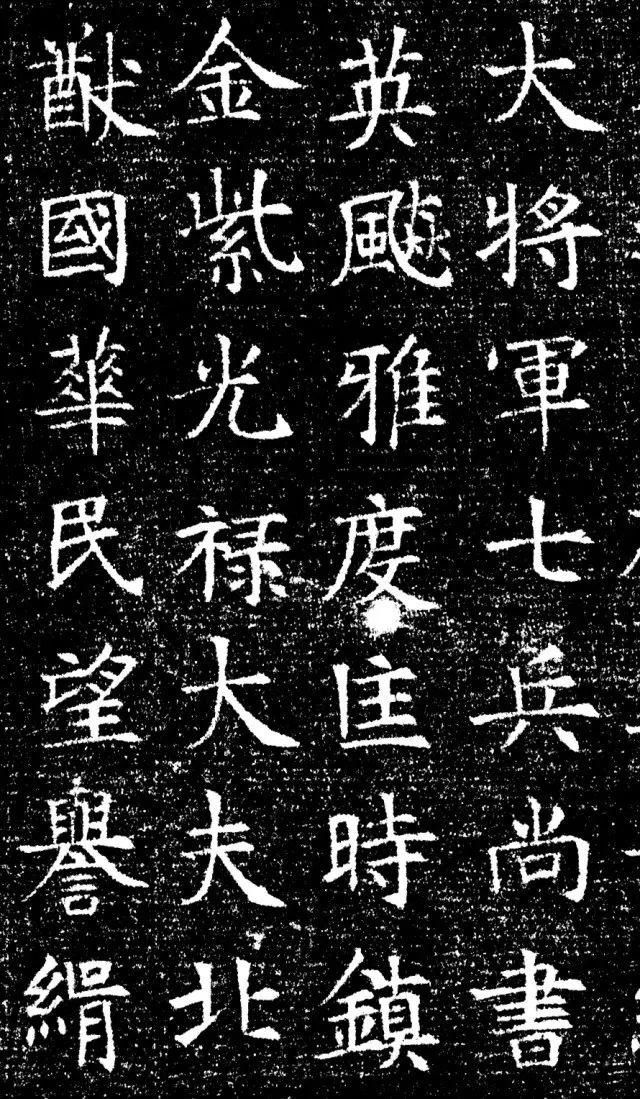 大將軍七兵尚書
英颷雅度匡時鎮
金紫光禄大夫北
猷國華民望譽緝